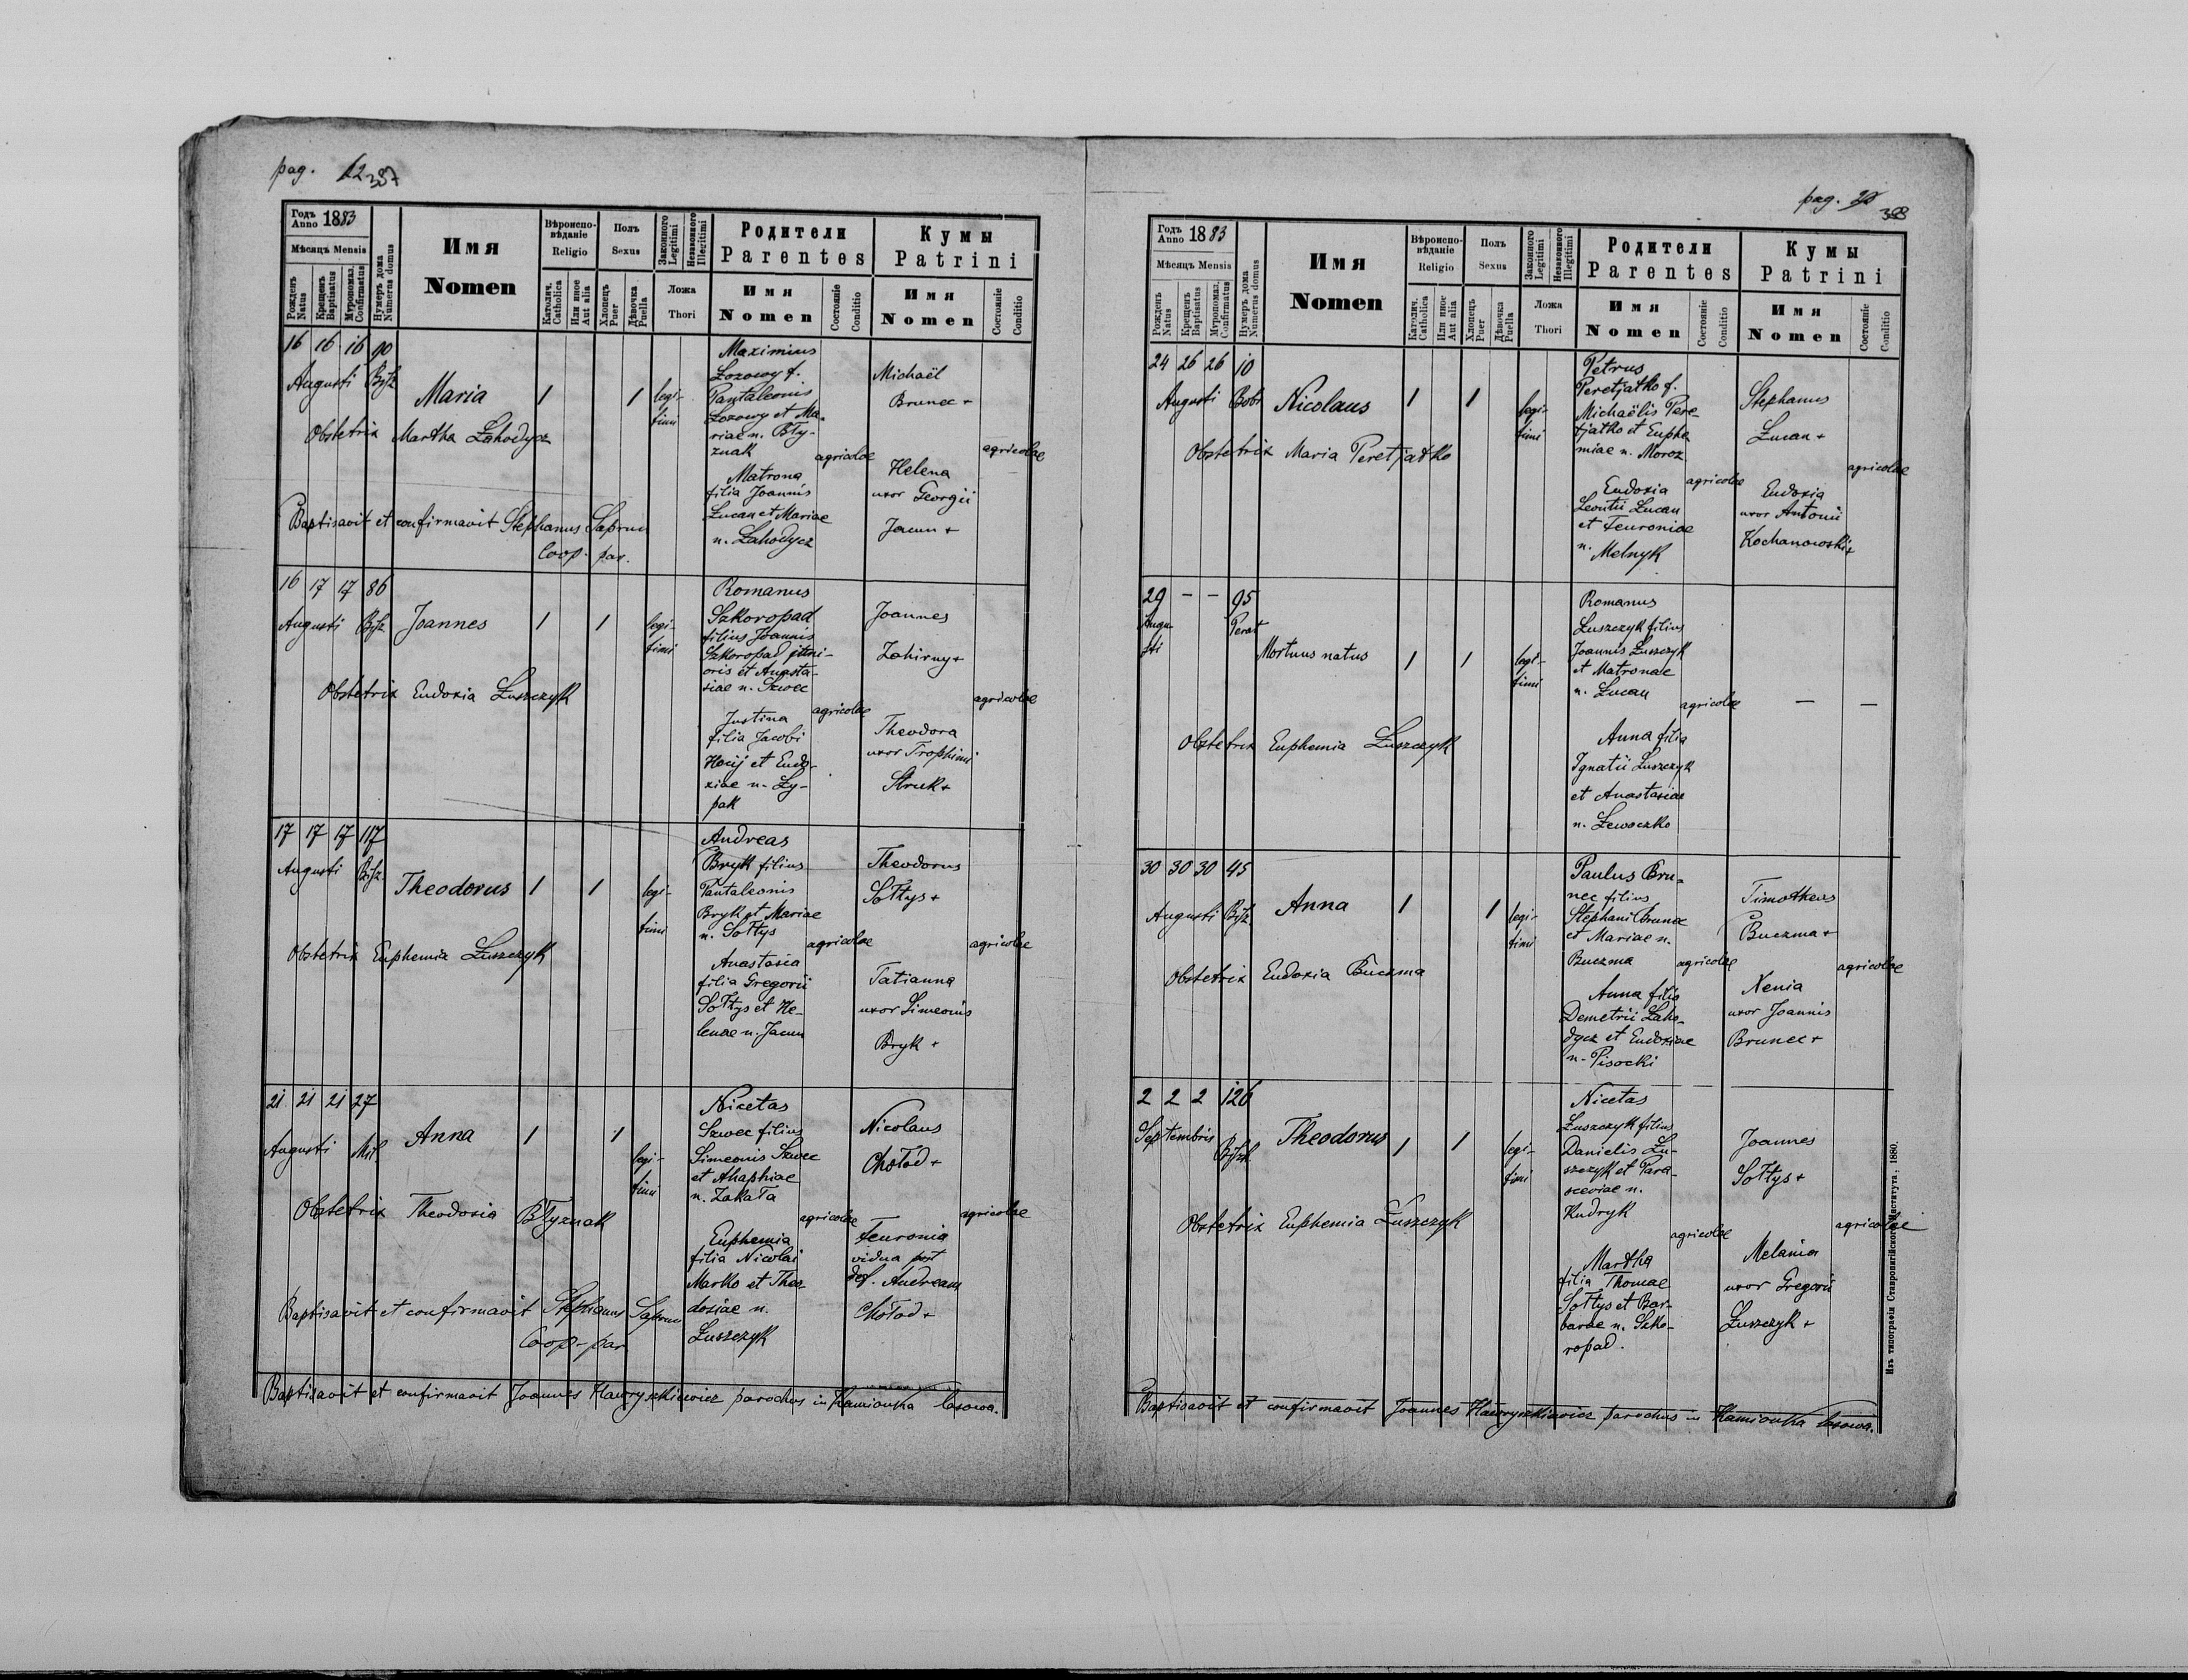 pag. 12 387
Годъ Anno 1883
Мѣсяцъ Mensis
Рожденъ Natus
Крещенъ Baptisatus
Мѵропомаз. Confirmatus
Нумеръ дома Numerus domus
Имя
Nomen
Вѣроиспо-
вѣданіе
Religio
Католич. Catholica
Или иное Aut alia
Полъ
Sexus
Хлопецъ Puer
Дѣвочка Puella
Законного Legitimi
Незаконного Illegitimi
Ложа
Thori
Родители
Parentes
Имя
Nomen
Состояніе Conditio
Кумы
Patrini
Имя
Nomen
Состояніе Conditio
16 16 16 90
Augusti Bysz
Maria 1 1 legi-
timi
Obstetrix Martha Zahodycz
Maximius
Łozowy f.
Pantaleonis
Łozowy et Ma-
riae n. Bły-
znak
agricolae
Matrona
filia Joannis
Łucan et Mariae
n. Zahodycz
Michaël
Brunec +
Helena
uxor Georgii
Jacun +
agricolae
Baptisavit et confirmavit Stephanus Saprun
Coop. par.
16 17 17 86
Augusti Bysz
Joannes 1 1 legi-
timi
Obstetrix Eudoxia Łuszczyk
Romanus
Szkoropad
filius Joannis
Szkoropad juni-
oris et Anasta-
siae n. Szwec
agricolae
Justina
filia Jacobi
Hocij et Eudo-
xiae n. Ły-
pak
Joannes
Zahirny +
Theodora
uxor Trophimi
Struk +
agricolae
17 17 17 117
Augusti Bysz
Theodorus 1 1 legi-
timi
Obstetrix Euphemia Łuszczyk
Andreas
Bryk filius
Pantaleonis
Bryk et Mariae
n. Sołtys
agricolae
Anastasia
filia Gregorii
Sołtys et He-
lenae n. Jacun
Theodorus
Sołtys +
Tatianna
uxor Simeonis
Bryk +
agricolae
21 21 21 27
Augusti Mil.
Anna 1 1 legi-
timi
Obstetrix Theodosia Błyznak
Nicetas
Szwec filius
Simeonis Szwec
et Ahaphiae
n. Zakała
agricolae
Euphemia
filia Nicolai
Marko et Theo-
dosiae n.
Łuszczyk
Nicolaus
Chołod +
Feuronia
vidua post
def. Andream
Chołod +
agricolae
Baptisavit et confirmavit Stephanus Saprun
Coop. par.
Baptisavit et confirmavit Joannes Hawryszkiewicz parochus in Kamionka lasowa.
pag. 388
Годъ Anno 1883
Мѣсяцъ Mensis
Рожденъ Natus
Крещенъ Baptisatus
Мѵропомаз. Confirmatus
Нумеръ дома Numerus domus
Имя
Nomen
Вѣроиспо-
вѣданіе
Religio
Католич. Catholica
Или иное Aut alia
Полъ
Sexus
Хлопецъ Puer
Дѣвочка Puella
Законного Legitimi
Незаконного Illegitimi
Ложа
Thori
Родители
Parentes
Имя
Nomen
Состояніе Conditio
Кумы
Patrini
Имя
Nomen
Состояніе Conditio
24 26 26 10
Augusti Bobr
Nicolaus 1 1 legi-
timi
Obstetrix Maria Peretjatko
Petrus
Peretjatko f.
Michaëlis Pere-
tjatko et Euphe
miae n. Moroz
agricolae
Eudoxia
Leontii Łucan
et Feuroniae
n. Melnyk
Stephanus
Łucan +
Eudoxia
uxor Antonii
Kochanowski +
agricolae
29 – – 95
Augu-
sti Perat
Mortuus natus 1 1 legi-
timi
Obstetrix Euphemia Łuszczyk
Romanus
Łuszczyk filius
Joannis Łuszczyk
et Matronae
n. Łucan
agricolae
Anna filia
Ignatii Łuszczyk
et Anastasiae
n. Lewoczko
– –
30 30 30 45
Augusti Bysz
Anna 1 1 legi-
timi
Obstetrix Eudoxia Buczma
Paulus Bru-
nec filius
Stephani Brunec
et Mariae n.
Buczma
agricolae
Anna filia
Demetrii Zaho-
dycz et Eudoxiae
n. Pisocki
Timotheus
Buczma +
Xenia
uxor Joannis
Brunec +
agricolae
2 2 2 126
Septembris Byszk
Theodorus 1 1 legi-
timi
Obstetrix Euphemia Łuszczyk
Nicetas
Łuszczyk filius
Danielis Łu-
szczyk et Para-
sceviae n.
Kudryk
agricolae
Martha
filia Thomae
Sołtys et Bar-
barae n. Szko-
ropad.
Joannes
Sołtys +
Melania
uxor Gregorii
Łuszczyk +
agricolae
Baptisavit et confirmavit Joannes Hawryszkiewicz parochus in Kamionka lasowa.
Изъ типографіи Ставропигійского Института: 1880.